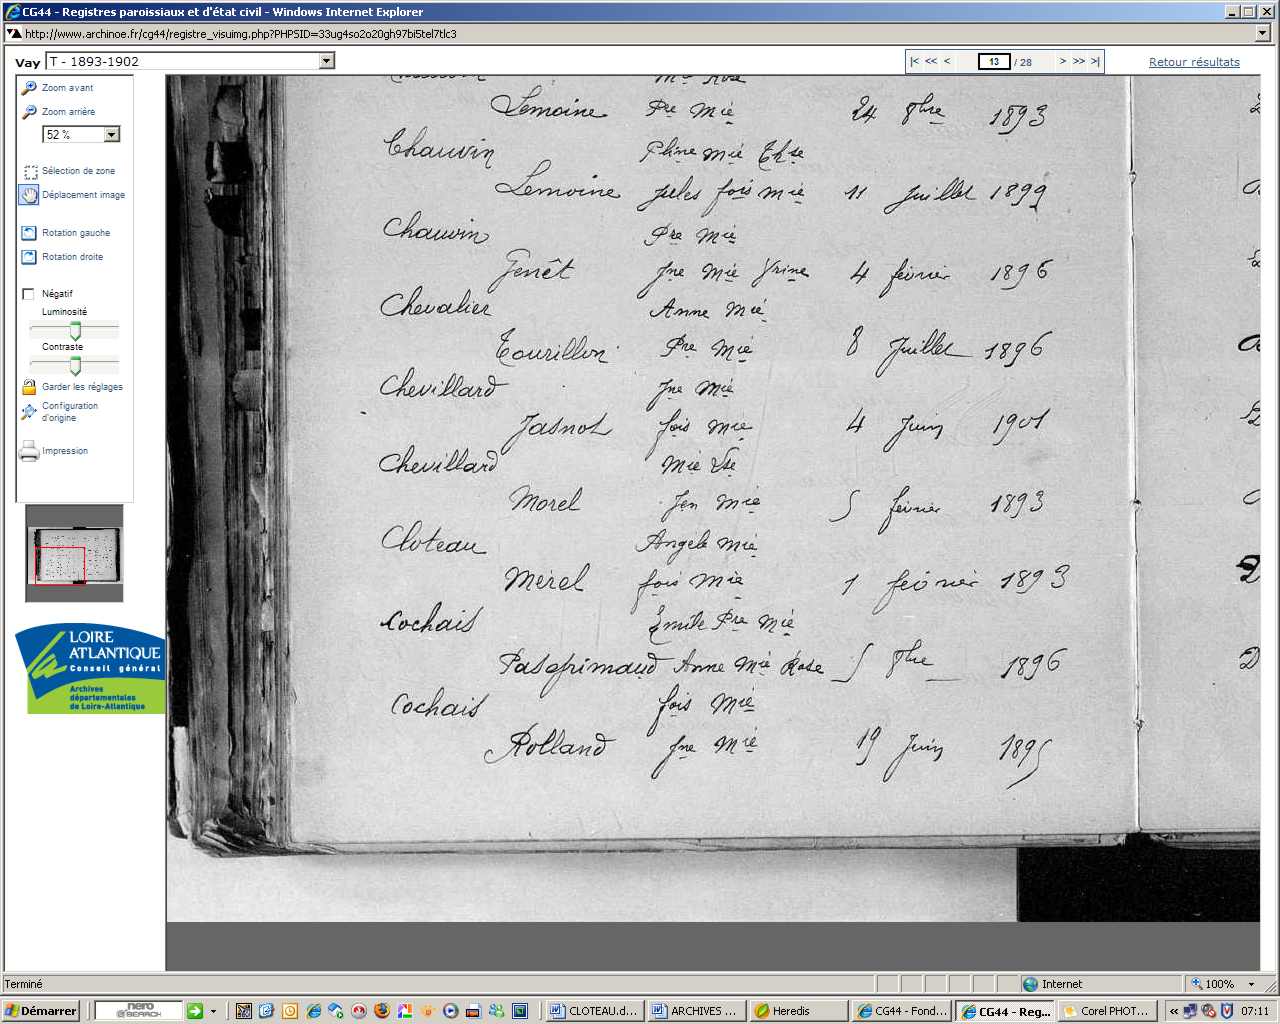 CG44 - Registres paroissiaux et d'état civil - Windows Internet Explorer
http://www.archinoe.fr/cg44/registre_visuimg.php?PHPSID=33ug4so2o20gh97bi5tel7tlc3
Vay T - 1893-1902
|< << < 13 / 28 > >> >|
Retour résultats
Zoom avant
Zoom arrière
52 %
Sélection de zone
Déplacement image
Rotation gauche
Rotation droite
Négatif
Luminosité
Contraste
Garder les réglages
Configuration
d'origine
Impression
LOIRE
ATLANTIQUE
Conseil général
Archives
départementales
de Loire-Atlantique
Mie Rose
Lemoine Pre Mie 24 8bre 1893
Chauvin Phine Mie Thse
Lemoine Jules fois Mie 11 Juillet 1899
Chauvin Pre Mie
Genêt Jne Mie Vrine 4 février 1896
Chevalier Anne Mie
Tourillon Pre Mie 8 Juillet 1896
Chevillard Jne Mie
Jasnot fois Mie 4 Juin 1901
Chevillard Mie Vse
Morel Jen Mie 5 février 1893
Cloteau Angele Mie
Mérel fois Mie 1 février 1893
Cochais Emile Pre Mie
Pasgrimaud Anne Mie Rose 5 8bre 1896
Cochais fois Mie
Rolland Jne Mie 19 Juin 1895
Terminé
Internet
100%
Démarrer
nero
SEARCH
CLOTEAU.d...
ARCHIVES ...
Heredis
CG44 - Fond...
CG44 - Reg...
Corel PHOT...
07:11